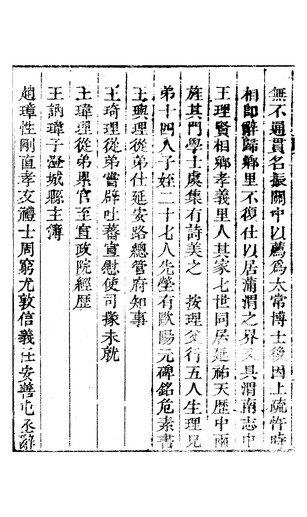 無不通貫名振關中以薦爲太常博士後因上疏忤時
相即辭歸鄉里不復仕以居蒲渭之界又具渭南志中
王理賢相鄉孝義里人其家七世同居延祐天歷中兩
旌其門學士虞集有詩美之　按理父行五人生理兄
弟十四人子姪二十七人先塋有歐陽元碑銘危素書
王輿理從弟仕延安路總管府知事
王琦理從弟嘗辟吐蕃宣慰使司掾未就
王瑋理從弟累官至直政院經歷
王訥瑋子城縣主簿
趙璋性剛直孝友禮士周窮尤敦信義任安善屯丞辭